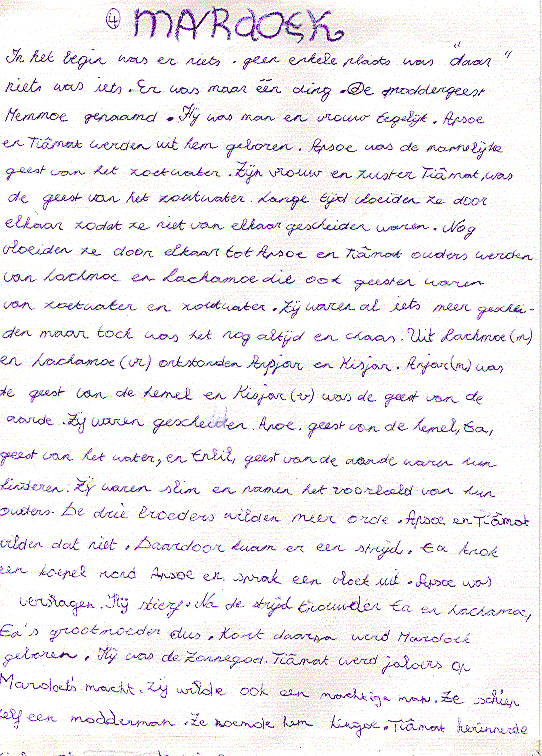 ④ MARdOEK
In het begin was er niets. geen enkele plaats was "daar"
niets was iets. Er was maar één ding. De moddergeest
Memmoe genaamd. Hij was man en vrouw tegelijk. Apsoe
en Tiâmat werden uit hem geboren. Apsoe was de mannelijke
geest van het zoetwater. Zijn vrouw en zuster Tiâmat, was
de geest van het zoutwater. Lange tijd vloeiden ze door
elkaar zodat ze niet van elkaar gescheiden waren. Nog
vloeiden ze door elkaar tot Apsoe en Tiâmat ouders werden
van Lachmoe en Lachamoe die ook geesten waren
van zoetwater en zoutwater. Zij waren al iets meer geschei-
den maar toch was het nog altijd en chaos. Uit Lachmoe (m)
en Lachamoe (vr) ontstonden Anpjar en Kisjar. Anjar (m) was
de geest van de hemel en Kisjar (v) was de geest van de
aarde. Zij waren gescheiden. Anoe. geest van de hemel, Ea,
geest van het water, en Enlil, geest van de aarde waren hun
kinderen. Zij waren slim en namen het voorbeeld van hun
ouders. De drie broeders wilden meer orde. Apsoe en Tiâmat
wilden dat niet. Daardoor kwam er een strijd. Ea trok
een koepel rond Apsoe en sprak een vloek uit. Apsoe was
verslagen. Hij stierf. Na de strijd trouwden Ea en Lachamoe,
Ea's grootmoeder dus. Kort daarna werd Mardoek
geboren. Hij was de Zonnegod. Tiâmat werd jaloers op
Mardoek's macht. Zij wilde ook een machtige man. Ze schiep
zelf een modderman. Ze noemde hem Kingoe. Tiâmat herinnerde